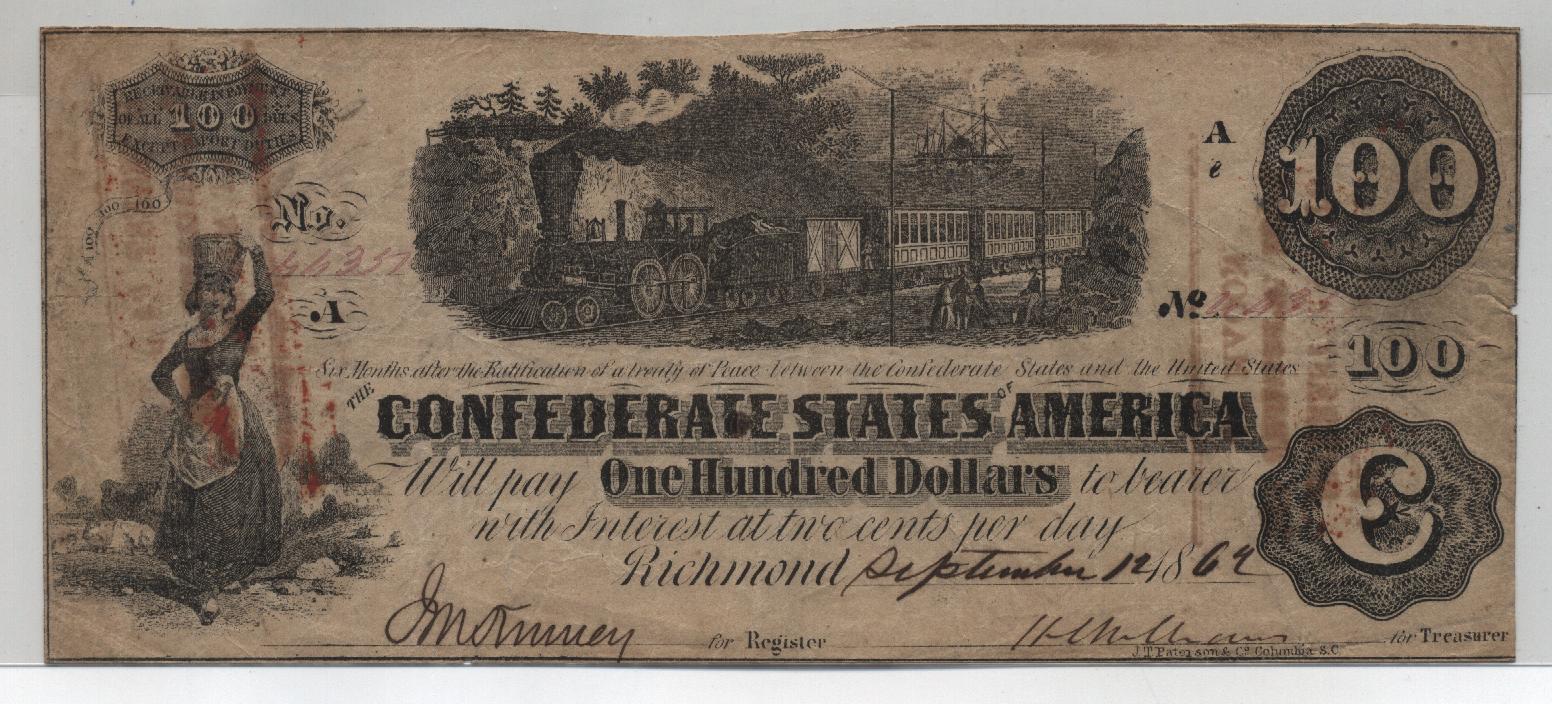 RECEIVABLE IN PAYMENT
OF ALL 100 DUES
EXCEPT EXPORT DUTIES
100 100 100
No.
A
A
e
100
No
100
Six Months after the Ratification of a treaty of Peace between the Confederate States and the United States
THE CONFEDERATE STATES OF AMERICA
Will pay One Hundred Dollars to bearer
with Interest at two cents per day
Richmond September 12 1862
C
for Register
for Treasurer
J.T. Paterson & Co. Columbia S.C.